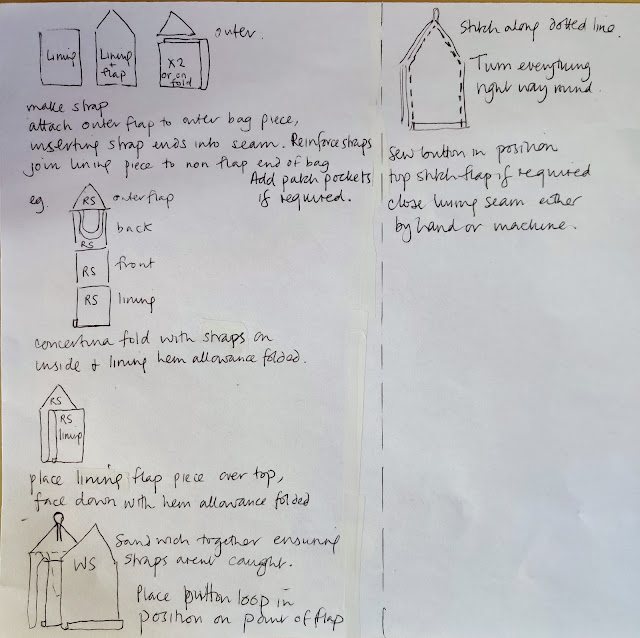 Lining
Lining
+
flap
X2
or on
fold
outer.
make strap
attach outer flap to outer bag piece,
inserting strap ends into seam. Reinforce straps
join lining piece to non flap end of bag
Add patch pockets
if required.
eg.
RS
outer flap
back
RS
RS
front
RS
lining
concertina fold with straps on
inside & lining hem allowance folded.
RS
RS
lining
place lining flap piece over top,
face down with hem allowance folded
WS
Sandwich together ensuring
straps aren't caught.
Place button loop in
position on point of flap
Stitch along dotted line.
Turn everything
right way round.
Sew button in position
top stitch flap if required
close lining seam either
by hand or machine.